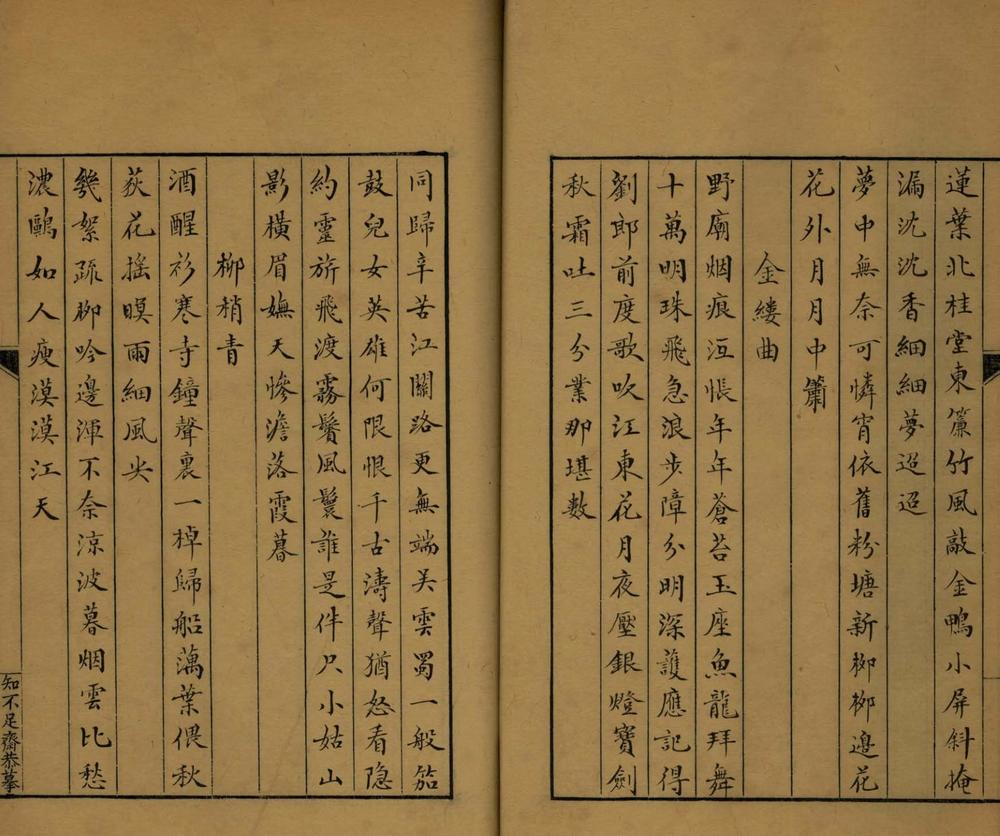 蓮葉北桂堂東簾竹風敲金鴨小屏斜掩
漏沈沈香細細夢迢迢
夢中無奈可憐宵依舊粉塘新柳柳邊花
花外月月中簫
金縷曲
野廟烟痕沍悵年年蒼苔玉座魚龍拜舞
十萬明珠飛急浪步障分明深護應記得
劉郎前度歌吹江東花月夜壓銀燈寶劍
秋霜吐三分業那堪數
同歸辛苦江關路更無端吴雲蜀一般笳
鼓兒女英雄何限恨千古濤聲猶怒看隐
約靈旂飛渡霧鬢風鬟誰是伴尺小姑山
影橫眉嫵天慘澹落霞暮
柳梢青
酒醒衫寒寺鐘聲裏一棹歸船藕葉偎秋
荻花搖暝雨細風尖
幾絮疏柳吟邊渾不奈涼波暮烟雲比愁
濃鷗如人瘦漠漠江天
知不足齋恭摹